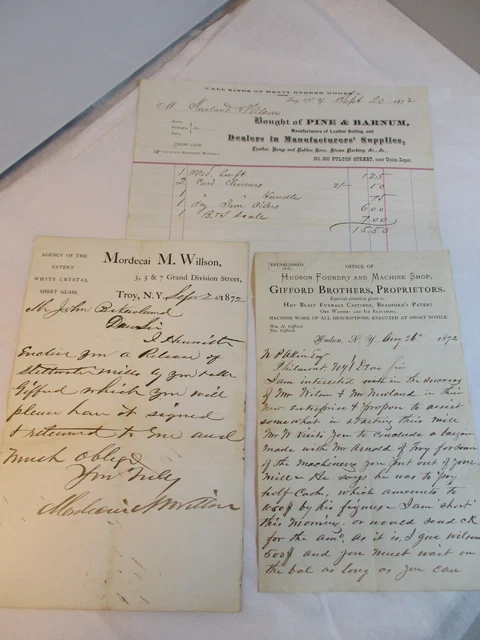 ALL KINDS OF HEAVY RUBBER GOODS
Troy, N. Y. Sept 20 1872
M Newland & Wilson
Bought of PINE & BARNUM,
Manufacturers of Leather Belting, and
Dealers in Manufacturers' Supplies,
Leather, Hemp and Rubber Hose, Steam Packing, &c., &c.,
NO. 350 FULTON STREET, near Union Depot.
TERMS CASH
1 125
2 Card 2/- 50
1 " " Handle 75
1 600
1 B.&S. Scale 7.00
15.50
AGENCY OF THE
PATENT
WHITE CRYSTAL
SHEET GLASS.
Mordecai M. Willson,
3, 5 & 7 Grand Division Street,
Troy, N.Y. Sept 20 1872
Mr John
Dear Sir
I herewith
Enclose you a Release of
Stillwater mills by
Gifford which you will
please have it signed
& returned to me and
much oblige
Yours Truly
Mordecai M Willson
ESTABLISHED
OFFICE OF
HUDSON FOUNDRY AND MACHINE SHOP,
GIFFORD BROTHERS, PROPRIETORS.
Especial attention given to
HOT BLAST FURNACE CASTINGS, BRADFORD'S PATENT
ORE WASHERS AND ICE ELEVATORS.
MACHINE WORK OF ALL DESCRIPTIONS, EXECUTED AT SHORT NOTICE.
Wm. H. Gifford.
Hudson, N. Y. Aug 26th 1872
Philmont NY Dear Sir
I am interested with in the success
of Mr Wilson & Mr Newland in their
new enterprise & propose to assist
somewhat in starting their mill
Mr W visits you to conclude a bargain
made with Mr Arnold of Troy for some
of the machinery you put out of your
mill - He says he was to pay
half cash, which amounts to
1050$ by his figures - I am 'short'
this morning, or would send ck
for the amt. As it is, I give Wilson
500$ and you must wait on
the bal as long as you can